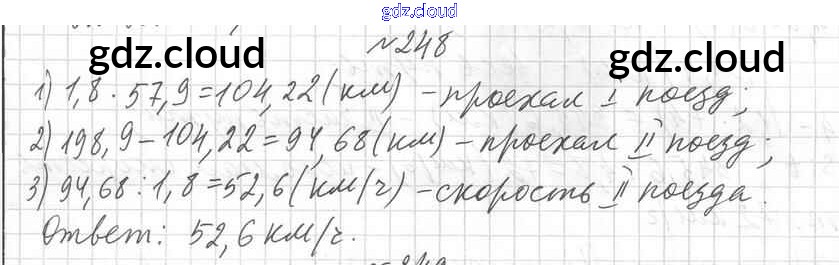 gdz.cloud
№248
gdz.cloud gdz.cloud
1) 1,8 · 57,9 = 104,22 (км) – проехал I поезд;
2) 198,9 – 104,22 = 94,68 (км) – проехал II поезд;
3) 94,68 : 1,8 = 52,6 (км/ч) – скорость II поезда.
Ответ: 52,6 км/ч.